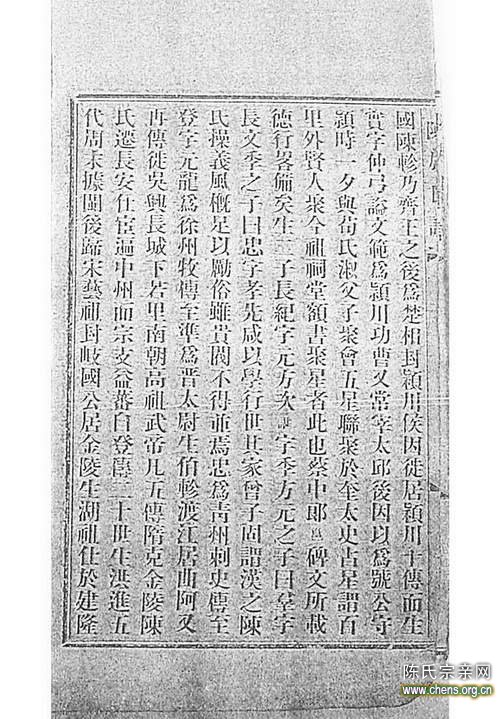 國陳軫乃齊王之後爲楚相封潁川侯因徙居潁川十傳而生
寔字仲弓諡文範爲潁川功曹又常宰太邱後因以爲號公守
潁時一夕與荀氏淑父子聚會五星聯聚於奎太史占星謂百
里外賢人聚今祖祠堂額書聚星者此也蔡中郎邕碑文所載
德行畧備矣生二子長紀字元方次諶字季方元之子曰羣字
長文季之子曰忠字孝先咸以學行世其家曾子固謂漢之陳
氏操義風概足以勵俗雖貴閥不得並焉忠爲靑州刺史傳至
登字元龍爲徐州牧傳至準爲晋太尉生伯軫渡江居曲阿又
再傳徙吳興長城下若里南朝高祖武帝凡五傳隋克金陵陳
氏遷長安仕宦遍中州而宗支益蕃自登傳二十世生洪進五
代周末據閩後歸宋藝祖封岐國公居金陵生湖祖仕於建隆
陈氏宗亲网
www.chens.org.cn